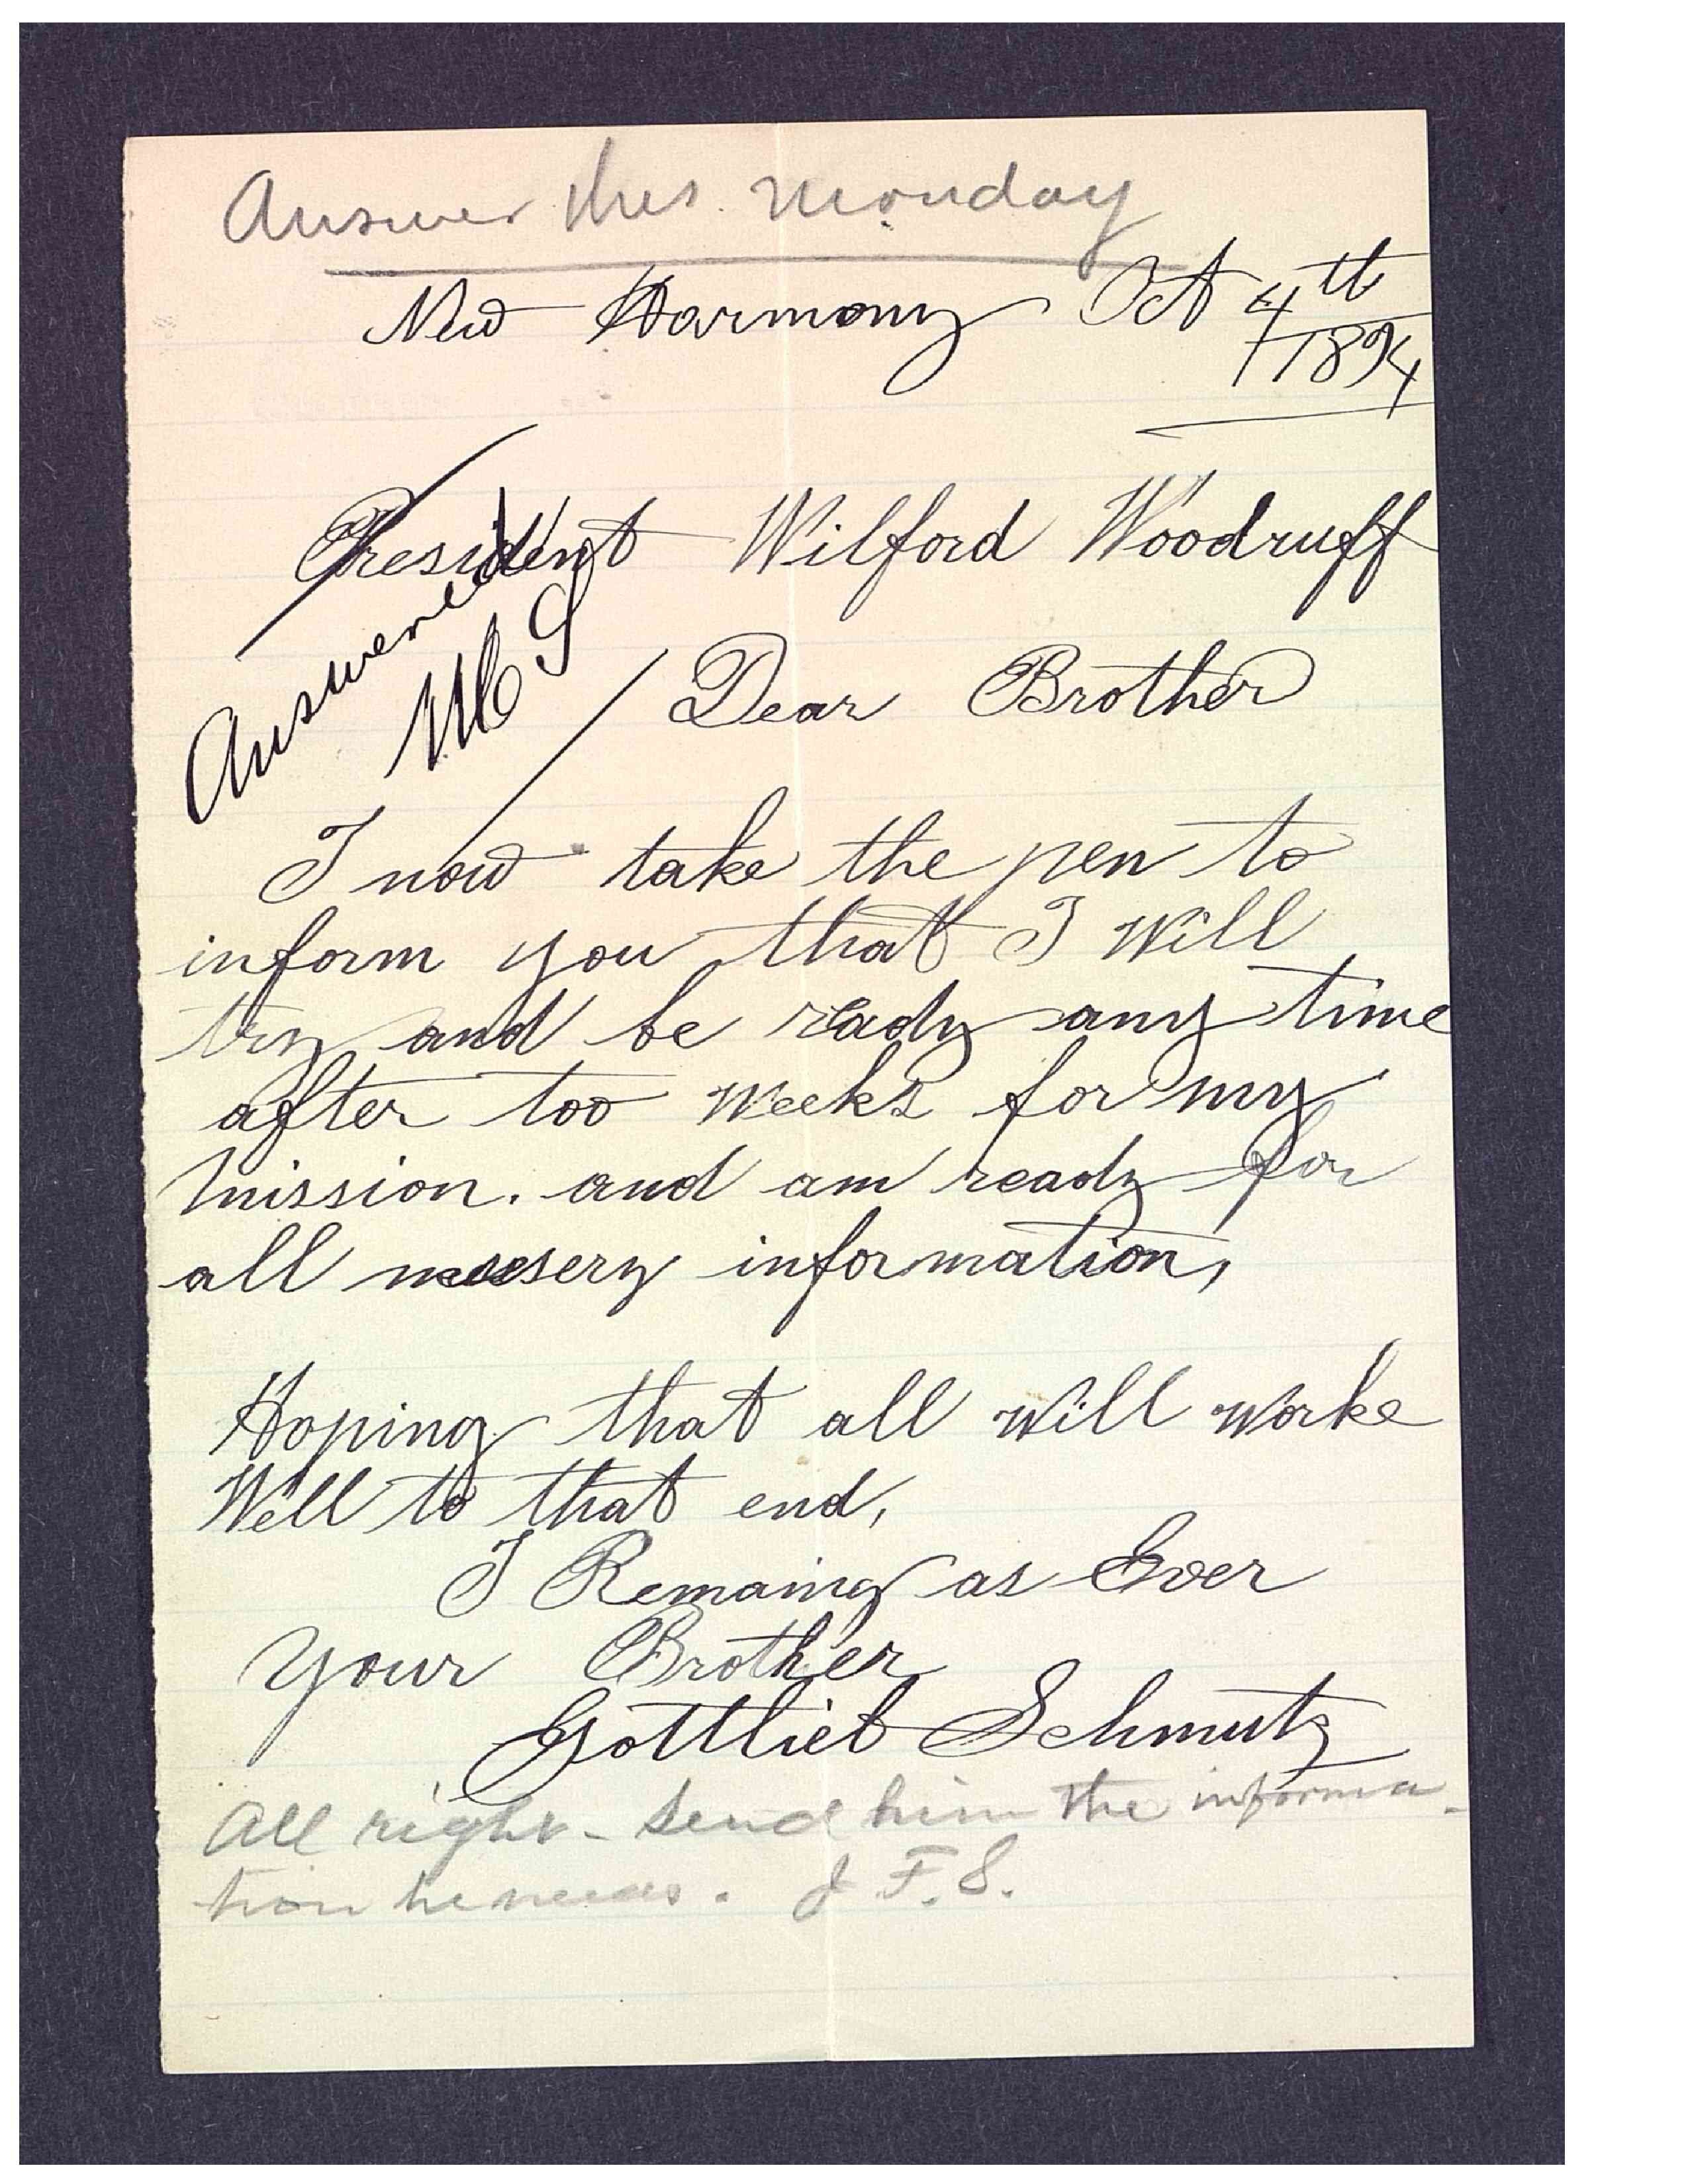 Answer this Monday
New Harmony Oct 4th
1894
President Wilford Woodruff
Answered
Dear Brother
I now take the pen to
inform you that I will
try and be ready any time
after too weeks for my
mission. and am ready for
all information,
Hoping that all will worke
Well to that end,
I Remaing as Ever
Your Brother
Gottlieb Schmutz
All right – send him the informa-
tion he needs. J F. S.